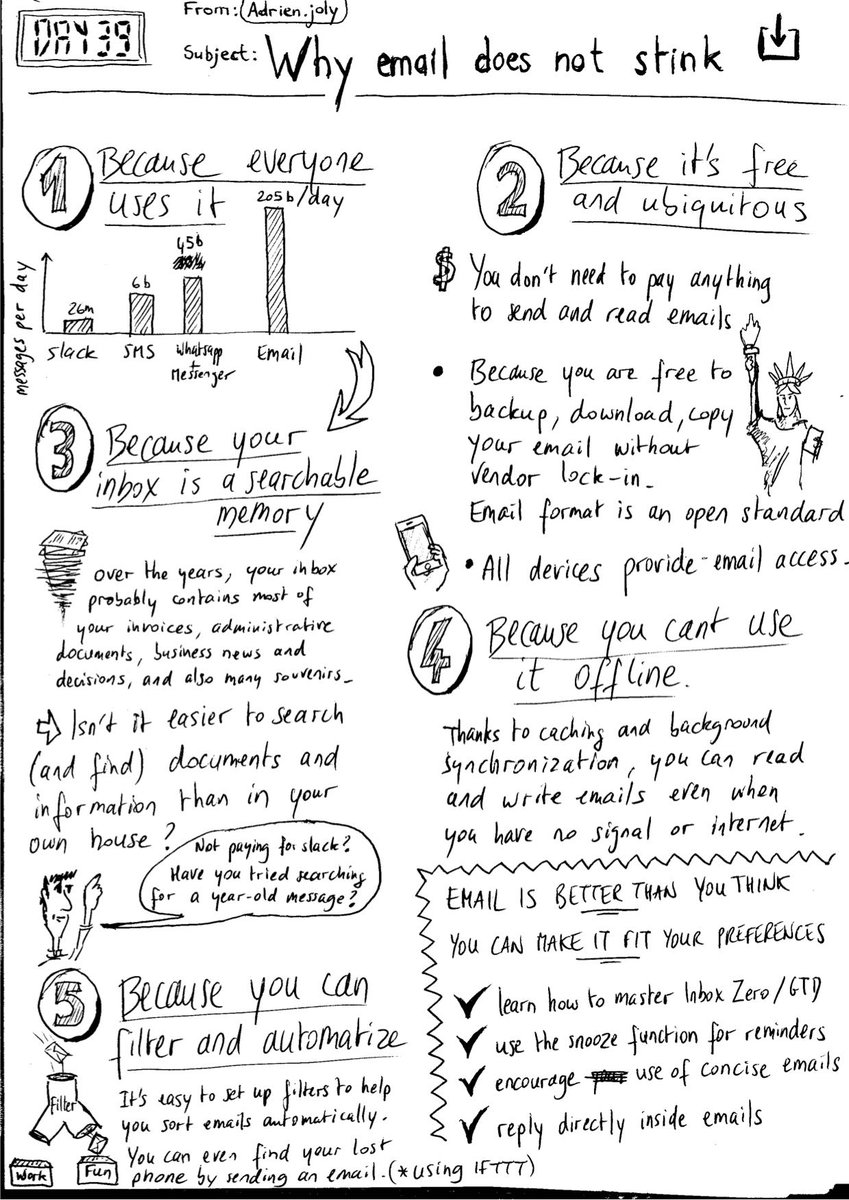 DAY 39
From: Adrien.joly
Subject: Why email does not stink
1 Because everyone
uses it
205b/day
45b
6b
26m
messages per day
Slack SMS Whatsapp Email
+
Messenger
2 Because it's free
and ubiquitous
$ You don't need to pay anything
to send and read emails
• Because you are free to
backup, download, copy
your email without
vendor lock-in.
Email format is an open standard
• All devices provide email access.
3 Because your
inbox is a searchable
memory
over the years, your inbox
probably contains most of
your invoices, administrative
documents, business news and
decisions, and also many souvenirs.
⇨ Isn't it easier to search
(and find) documents and
information than in your
own house?
Not paying for slack?
Have you tried searching
for a year-old message?
4 Because you cant use
it offline.
Thanks to caching and background
synchronization, you can read
and write emails even when
you have no signal or internet.
5 Because you can
filter and automatize
It's easy to set up filters to help
you sort emails automatically.
You can even find your lost
phone by sending an email. (*using IFTTT)
Filter
Work Fun
EMAIL IS BETTER THAN YOU THINK
YOU CAN MAKE IT FIT YOUR PREFERENCES
✓ learn how to master Inbox Zero/GTD
✓ use the snooze function for reminders
✓ encourage use of concise emails
✓ reply directly inside emails